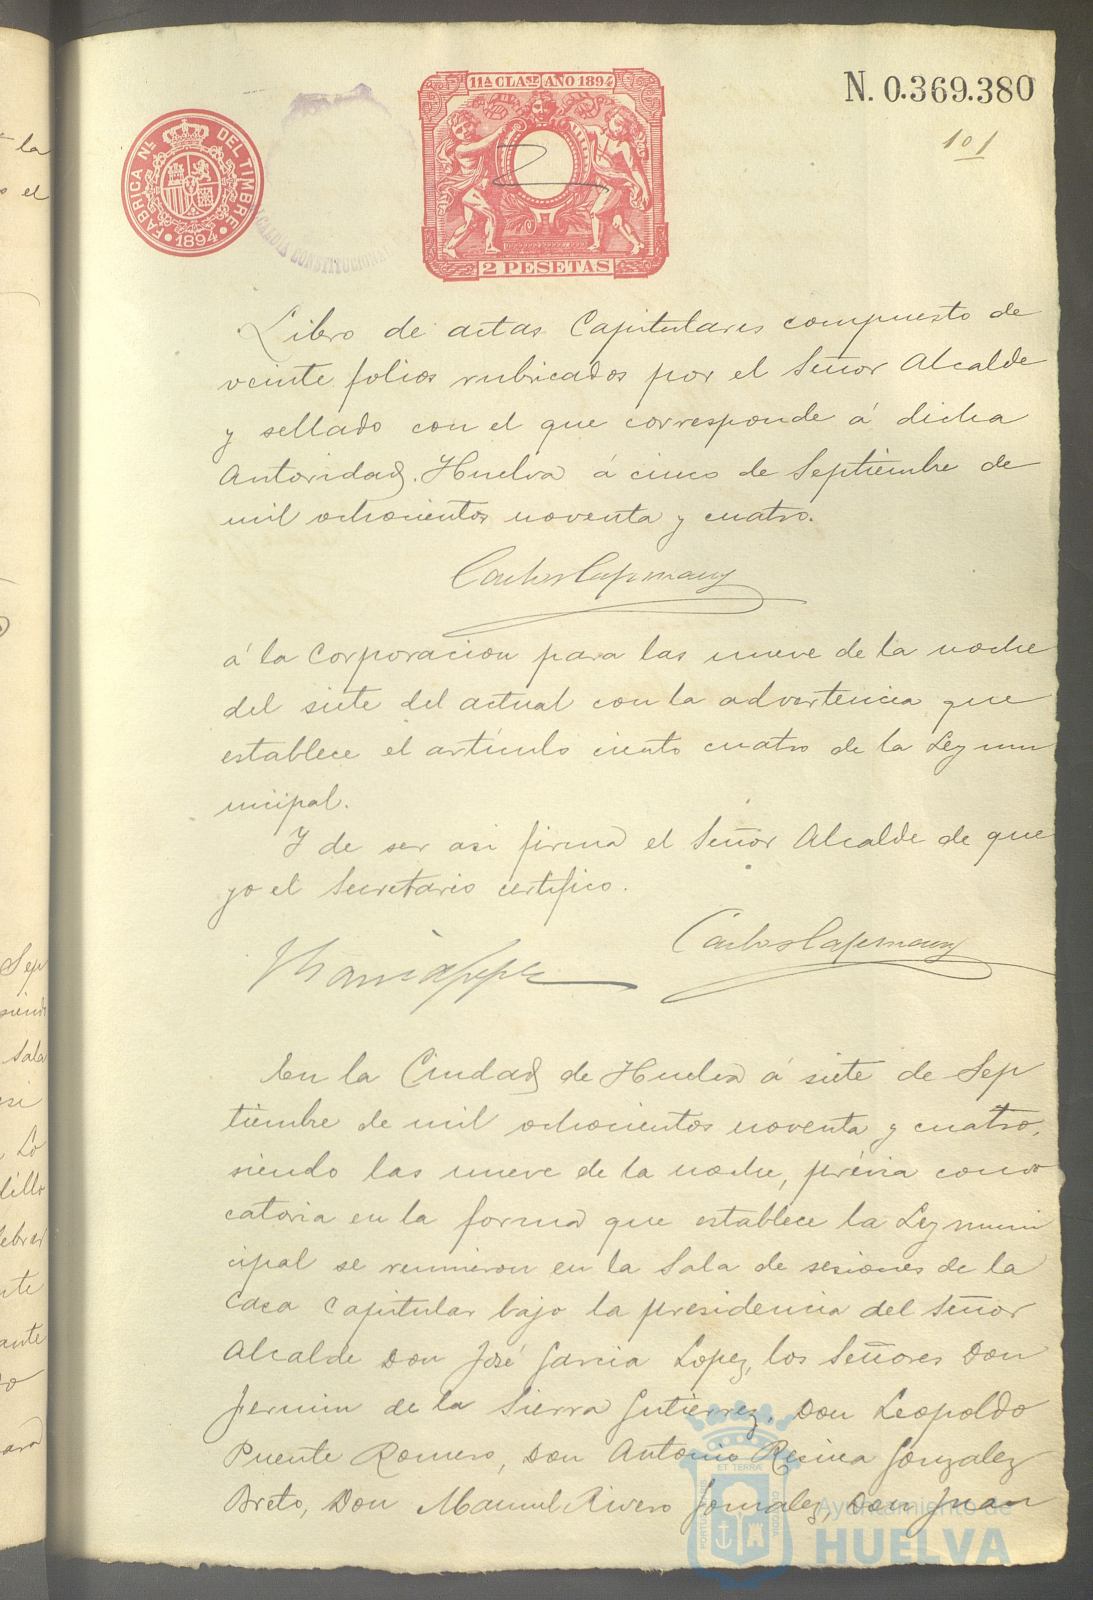 11ª CLASE AÑO 1894
N. 0.369.380
101
FABRICA NL. DEL TIMBRE
1894
ALCALDIA CONSTITUCIONAL
2 PESETAS
Libro de actas Capitulares compuesto de
veinte folios rubricados por el Señor Alcalde
y sellado con el que corresponde á dicha
Autoridad. Huelva á cinco de Septiembre de
mil ochocientos noventa y cuatro.
Carlos Capmany
á la Corporacion para las nueve de la noche
del siete del actual con la advertencia que
establece el artículo ciento cuatro de la Ley mu
nicipal.
Y de ser asi firma el Señor Alcalde de que
yo el Secretario certifico.
Carlos Capmany
En la Ciudad de Huelva á siete de Sep
tiembre de mil ochocientos noventa y cuatro,
siendo las nueve de la noche, prévia convo
catoria en la forma que establece la Ley muni
cipal se reunieron en la Sala de sesiones de la
Casa Capitular bajo la presidencia del Señor
Alcalde Don José Garcia Lopez, los Señores Don
Fermin de la Sierra Gutiérrez, Don Leopoldo
Puente Romero, Don Antonio Resina Gonzalez
Breto, Don Manuel Rivero Gonzalez, Don Juan
Ayuntamiento de
HUELVA